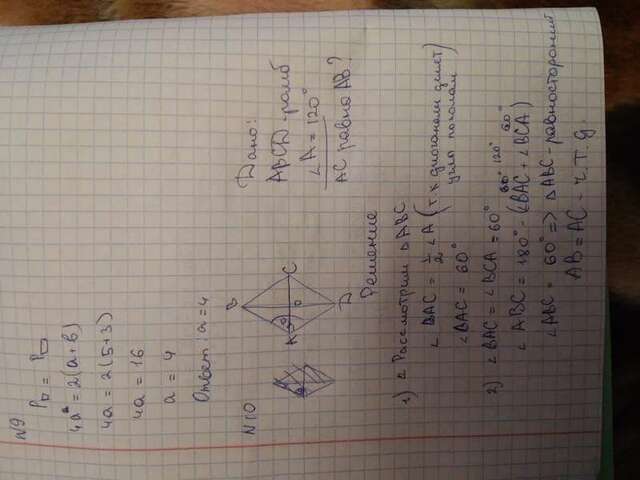 №9
P□ = P▭
4a = 2(a+b)
4a = 2(5+3)
4a = 16
a = 4
Ответ: a=4
№10
B
A
O
C
D
Дано:
ABCD - ромб
∠A = 120°
AC равно AB?
Решение
1) Рассмотрим △ABC
∠BAC = 1/2 ∠A (т.к диогонали делят
углы пополам)
∠BAC = 60°
2) ∠BAC = ∠BCA = 60°
60° 120° 60°
∠ABC = 180° - (∠BAC + ∠BCA)
∠ABC = 60° => △ABC - равносторонний
AB = AC - ч.т.д.